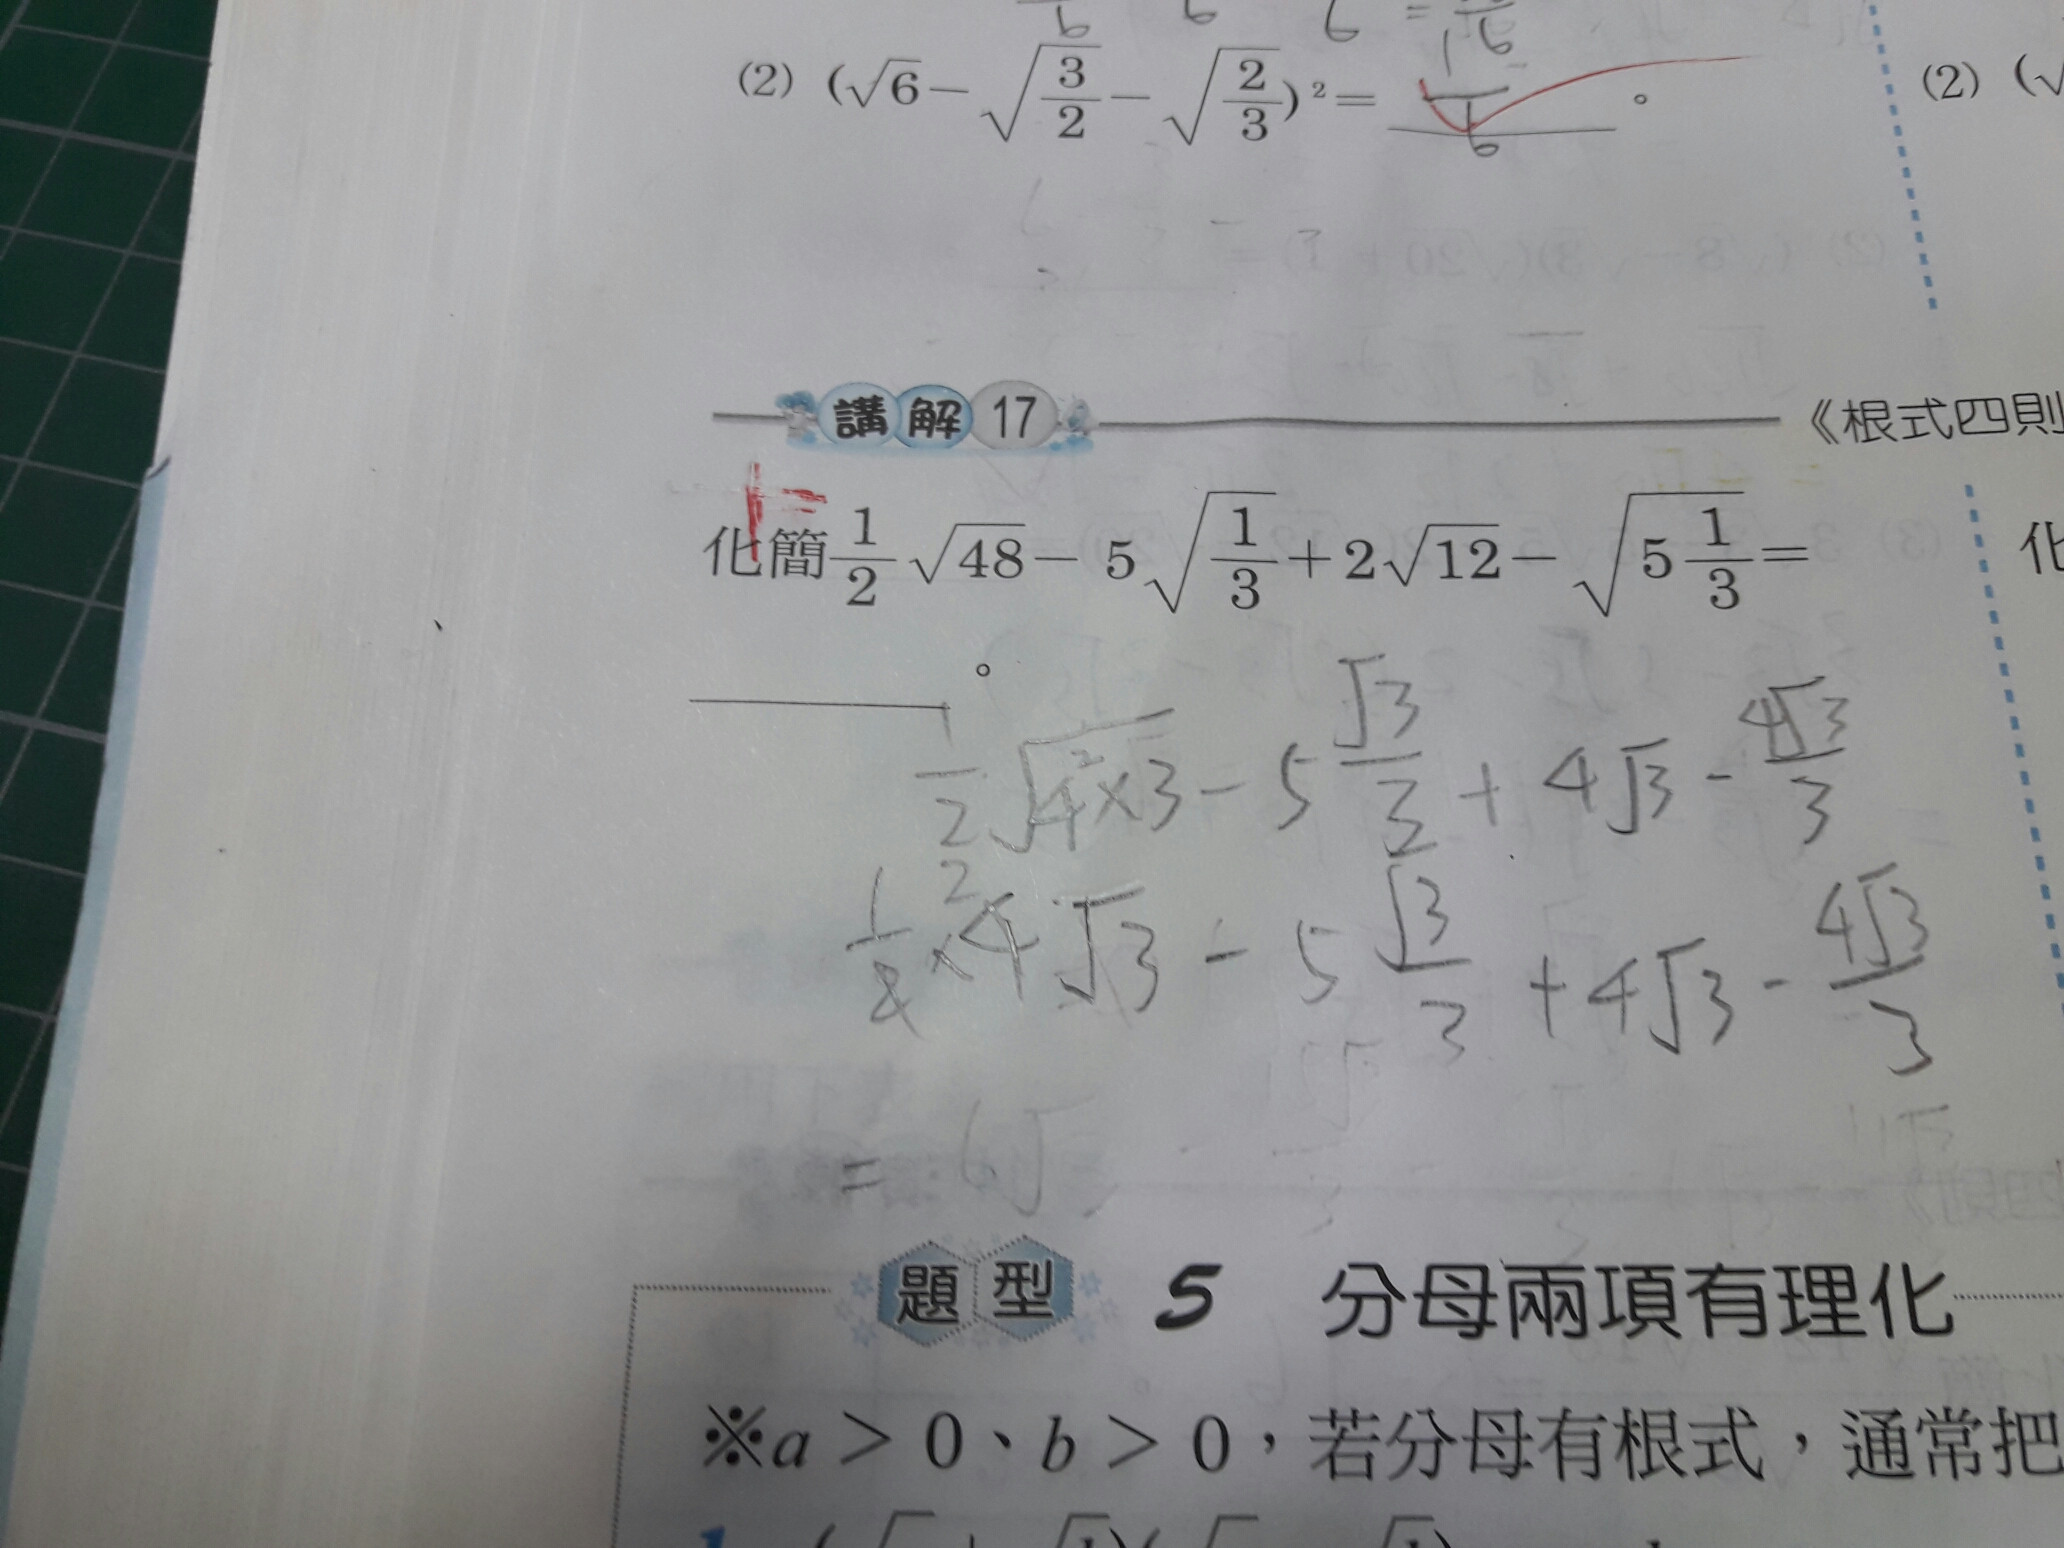 (2) (√6－√(3/2)－√(2/3))²＝ 1/6 。
(2) (√
講解 17
《根式四則
化簡 1/2 √48－5√(1/3)＋2√12－√(5 1/3)＝
化
。
1/2 √(4²×3) - 5 √3/3 + 4√3 - 4√3/3
1/2 × 4√3 - 5 √3/3 + 4√3 - 4√3/3
= 6√
題型 5 分母兩項有理化
※a＞0、b＞0，若分母有根式，通常把